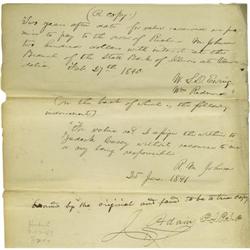 (A copy)
Two years after date for value received we pro
mise to pay to the order of Richd M Johnson
two hundred dollars with interest at the
Branch of the State Bank of Illinois at Van
dalia Feb. 27th 1840.
W. L. D. Ewing
Wm
(on the back of which is the following
)
For value rec I assign the within to
Zadock Casey without recourse to me
in any being responsible
R M Johnson
25 June 1841
by the original and found to be a true copy
J. Adams